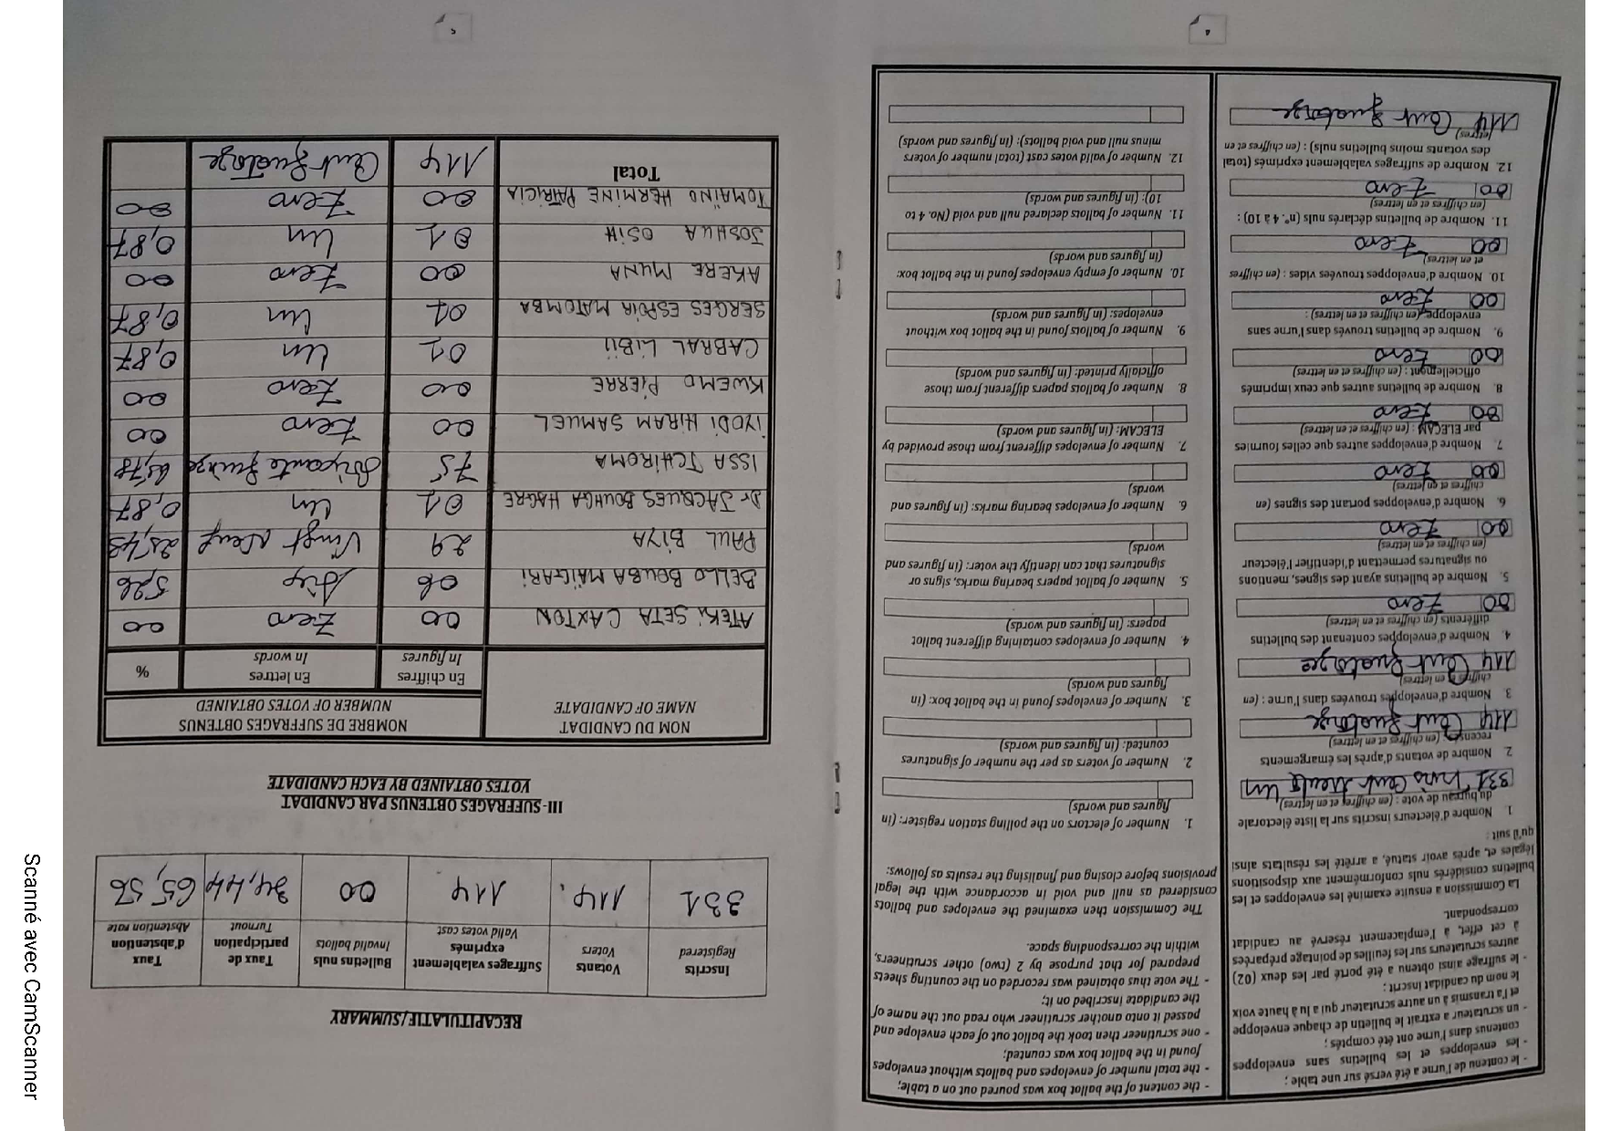 - le contenu de l'urne a été versé sur une table ;
- les enveloppes et les bulletins sans enveloppes contenus dans l'urne ont été comptés ;
- un scrutateur a extrait le bulletin de chaque enveloppe et l'a transmis à un autre scrutateur qui a lu à haute voix le nom du candidat inscrit ;
- le suffrage ainsi obtenu a été porté par les deux (02) autres scrutateurs sur les feuilles de pointage préparées à cet effet, à l'emplacement réservé au candidat correspondant.
La Commission a ensuite examiné les enveloppes et les bulletins considérés nuls conformément aux dispositions légales et, après avoir statué, a arrêté les résultats ainsi qu'il suit :
1. Nombre d'électeurs inscrits sur la liste électorale du bureau de vote : (en chiffres et en lettres)
331 Trois Cent trente Un
2. Nombre de votants d'après les émargements recensés (en chiffres et en lettres)
114 Cent Quatorze
3. Nombre d'enveloppes trouvées dans l'urne : (en chiffres et en lettres)
114 Cent Quatorze
4. Nombre d'enveloppes contenant des bulletins différents (en chiffres et en lettres)
00 Zero
5. Nombre de bulletins ayant des signes, mentions ou signatures permettant d'identifier l'électeur (en chiffres et en lettres)
00 Zero
6. Nombre d'enveloppes portant des signes (en chiffres et en lettres)
00 Zero
7. Nombre d'enveloppes autres que celles fournies par ELECAM : (en chiffres et en lettres)
00 Zero
8. Nombre de bulletins autres que ceux imprimés officiellement : (en chiffres et en lettres)
00 Zero
9. Nombre de bulletins trouvés dans l'urne sans enveloppe (en chiffres et en lettres) :
00 Zero
10. Nombre d'enveloppes trouvées vides : (en chiffres et en lettres)
00 Zero
11. Nombre de bulletins déclarés nuls (n°. 4 à 10) : (en chiffres et en lettres)
00 Zero
12. Nombre de suffrages valablement exprimés (total des votants moins bulletins nuls) : (en chiffres et en lettres)
114 Cent Quatorze
- the content of the ballot box was poured out on a table;
- the total number of envelopes and ballots without envelopes found in the ballot box was counted;
- one scrutineer then took the ballot out of each envelope and passed it onto another scrutineer who read out the name of the candidate inscribed on it;
- The vote thus obtained was recorded on the counting sheets prepared for that purpose by 2 (two) other scrutineers, within the corresponding space.
The Commission then examined the envelopes and ballots considered as null and void in accordance with the legal provisions before closing and finalising the results as follows:
1. Number of electors on the polling station register: (in figures and words)
2. Number of voters as per the number of signatures counted: (in figures and words)
3. Number of envelopes found in the ballot box: (in figures and words)
4. Number of envelopes containing different ballot papers: (in figures and words)
5. Number of ballot papers bearing marks, signs or signatures that can identify the voter: (in figures and words)
6. Number of envelopes bearing marks: (in figures and words)
7. Number of envelopes different from those provided by ELECAM: (in figures and words)
8. Number of ballots papers different from those officially printed: (in figures and words)
9. Number of ballots found in the ballot box without envelopes: (in figures and words)
10. Number of empty envelopes found in the ballot box: (in figures and words)
11. Number of ballots declared null and void (No. 4 to 10): (in figures and words)
12. Number of valid votes cast (total number of voters minus null and void ballots): (in figures and words)
4
RECAPITULATIF/SUMMARY
Inscrits Registered
Votants Voters
Suffrages valablement exprimés Valid votes cast
Bulletins nuls Invalid ballots
Taux de participation Turnout
Taux d'abstention Abstention rate
331 114. 114 00 34,44 65,56
III- SUFFRAGES OBTENUS PAR CANDIDAT
VOTES OBTAINED BY EACH CANDIDATE
NOM DU CANDIDAT
NAME OF CANDIDATE
NOMBRE DE SUFFRAGES OBTENUS
NUMBER OF VOTES OBTAINED
En chiffres In figures
En lettres In words
%
ATEKI SETA CAXTON 00 Zero 00
BELLO BOUBA MAIGARI 06 Six 5,26
PAUL BIYA 29 Vingt Neuf 25,43
Dr JACQUES BOUHGA HAGBE 01 Un 0,87
ISSA TCHIROMA 75 Soixante Quinze 65,78
IYODI HIRAM SAMUEL 00 Zero 00
KWEMO PIERRE 00 Zero 00
CABRAL LIBII 01 Un 0,87
SERGES ESPOIR MATOMBA 01 Un 0,87
AKERE MUNA 00 Zero 00
JOSHUA OSIH 01 Un 0,87
TOMAINO HERMINE PATRICIA 00 Zero 00
Total 114 Cent Quatorze
5
Scanné avec CamScanner